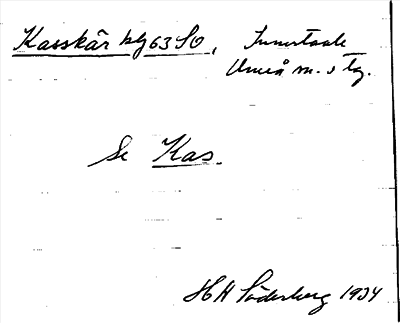 Kasskär klj 63 SO, Innertavle
Umeå m. o tg.
Se Kas.
HH Söderberg 1934